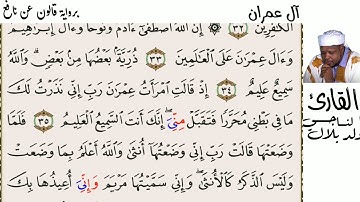 آل عمران
برواية قالون عن نافع
اَ۬لْكٰفِرِينَۖ ٣٢ إِنَّ اَ۬للَّهَ اَ۪صْطَف۪ىٰٓ ءَادَمَ وَنُوحاٗ وَءَالَ إِبْرَٰهِيمَ
وَءَالَ عِمْرَٰنَ عَلَى اَ۬لْعَٰلَمِينَ ٣٣ ذُرِّيَّةَۢ بَعْضُهَا مِنۢ بَعْضٖۖ وَاللَّهُ
سَمِيعٌ عَلِيمٌۖ ٣٤ إِذْ قَالَتِ اِ۪مْرَأَتُ عِمْرَٰنَ رَبِّ إِنِّي نَذَرْتُ لَكَ
مَا فِي بَطْنِي مُحَرَّراٗ فَتَقَبَّلْ مِنِّيَۖ إِنَّكَ أَنتَ اَ۬لسَّمِيعُ اُ۬لْعَلِيمُۖ ٣٥ فَلَمَّا
وَضَعَتْهَا قَالَتْ رَبِّ إِنِّي وَضَعْتُهَا أُنثَىٰ وَاللَّهُ أَعْلَمُ بِمَا وَضَعَتْ
وَلَيْسَ اَ۬لذَّكَرُ كَالُانثَىٰۖ وَإِنِّي سَمَّيْتُهَا مَرْيَمَ وَإِنِّيَ أُعِيذُهَا بِكَ
القارئ
الناجي
ولد بلال